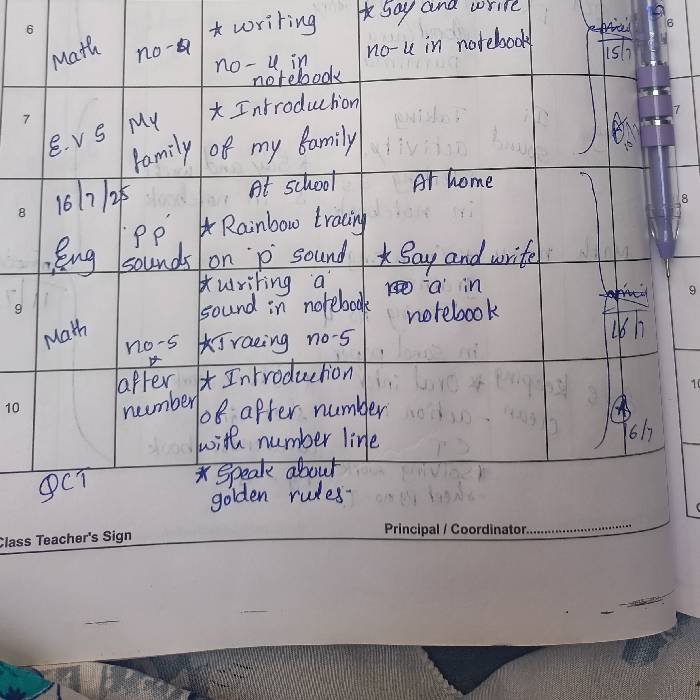 6
Math
no-4
* writing
no-4 in
notebook
* Say and write
no-4 in notebook
15/7
7
E.V S
My
family
* Introduction
of my family
8
16/7/25
At school
At home
Eng
'PP'
sounds
* Rainbow tracing
on 'p' sound
* writing 'a'
sound in notebook
* Say and write
'a' in
notebook
9
Math
no-5
* Tracing no-5
16/7
10
after
number
* Introduction
of after number
with number line
16/7
QCT
* Speak about
golden rules-
Class Teacher's Sign
Principal / Coordinator
6
7
8
9
10